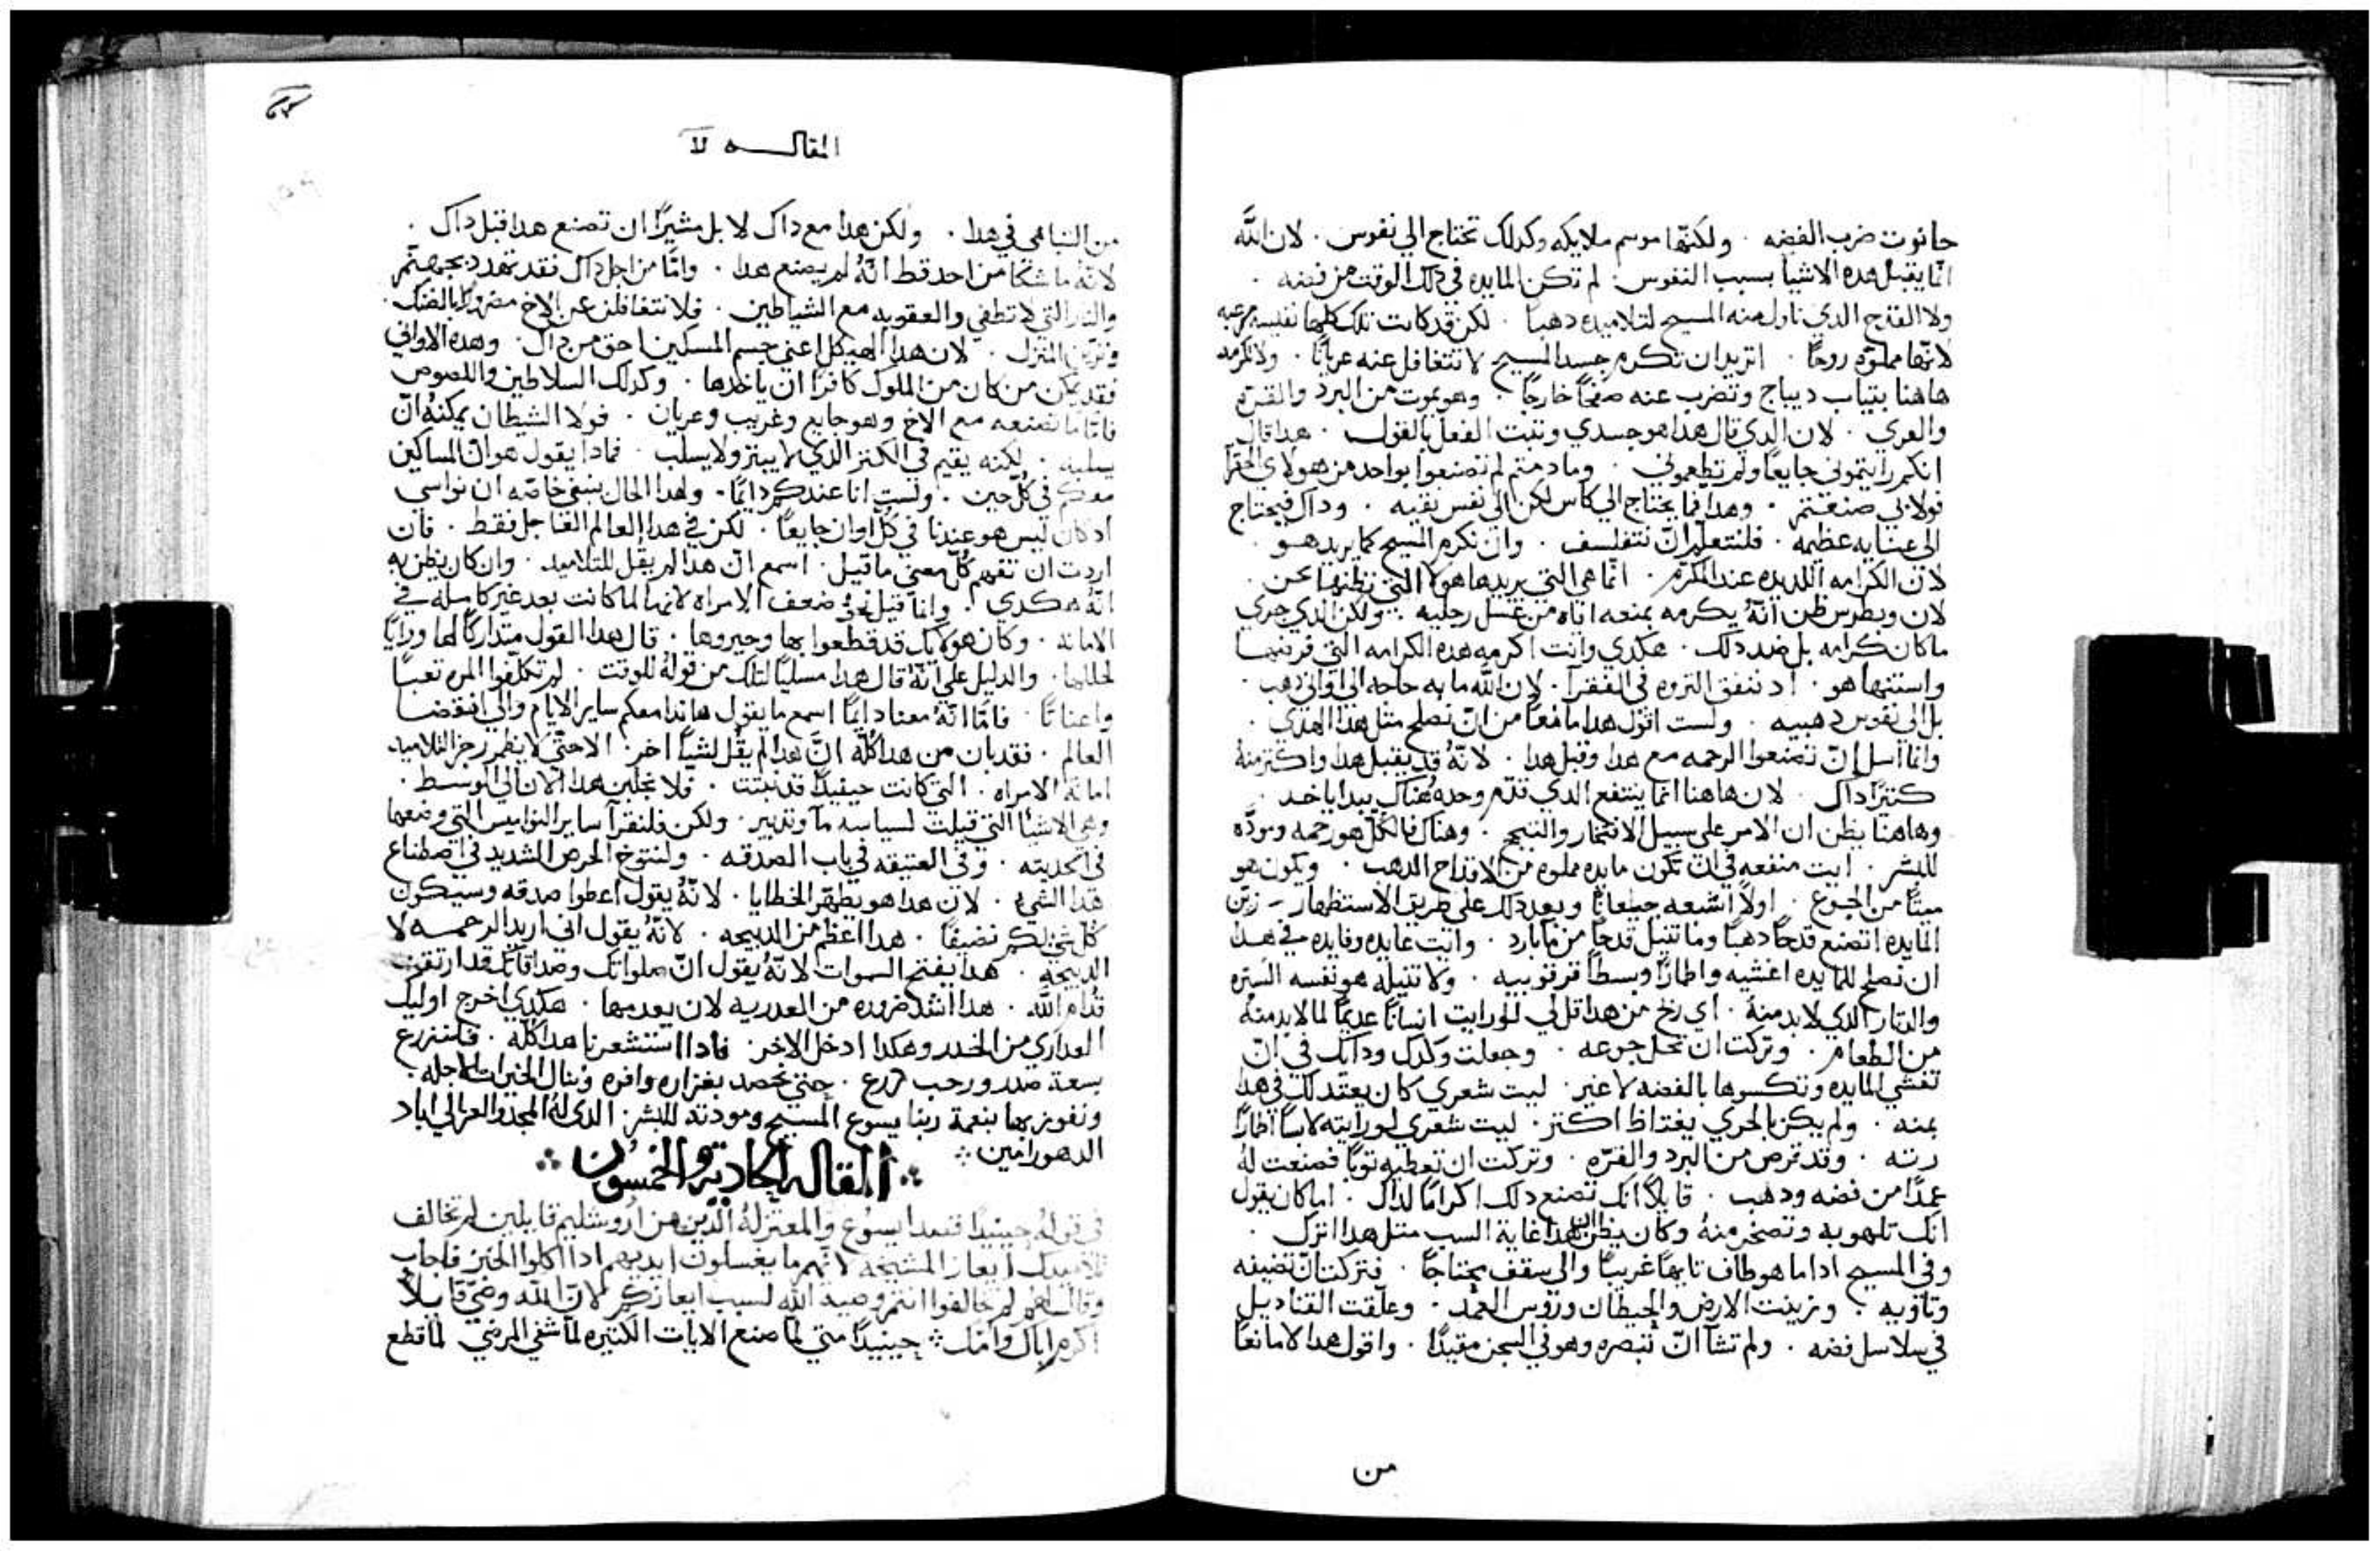 حانوت ضرب الفضه . ولكنّها موسم ملايكه وكدلك تحتاج الي نفوس . لان اللَّه
انّما يقبل هده الاشيا بسبب النفوس . لم تكن المايده في دلك الوقت من فضه .
ولا القدح الدي ناول منه المسيح لتلاميده دهبًا . لكن قد كانت تلك كلها نفيسه مرعبه
لانّها مملوّه روحًا . اتريد ان تكرم جسد المسيح لا تتغافل عنه عريانًا . ولا تكرمه
هاهنا بتياب ديباج وتضرب عنه صفحًا خارجًا . وهو يموت من البرد والقرّه
والعري . لان الدي قال هدا هو جسدي وتبت الفعل بالقول . هدا قال
انكم رايتموني جايعًا ولم تطعموني . وما دمتم لم تصنعوا بواحد من هولاي الحقرا
فولا بي صنعتم . وهدا فما يحتاج الي كاس لكن الي نفس نقيه . وداك فيحتاج
الي عنايه عظيمه . فلنتعلّم انّ نتفلسف . وان نكرم المسيح كما يريد هو .
لان الكرامه اللديده عند المكرّم . انّما هي التي يريدها هو لا التي نظنها نحن .
لان وبطرس ظن انّهُ يكرمه بمنعه اياه من غسل رجليه . ولكن الدي جري
ما كان كرامه بل ضد دلك . هكدي وانت اكرمه هده الكرامه التي فرضها
واستنها هو . اد تنفق التروه في الفقرآ . لان اللَّه ما به حاجه الي اواني دهب .
بل الي نفوس دهبيه . ولست اقول هدا مانعًا من انّ تصلح متل هدا الهدي .
وانّما اسل انّ تصنعوا الرحمه مع هدا وقبل هدا . لانّهُ قد يقبل هدا واكتر منهُ
كتيرًا داك . لان هاهنا انّما ينتفع الدي قدّم وحده هناك بيدا ياخد .
وهاهنا يظن ان الامر علي سبيل الافتخار والتبجح . وهناك فالكلّ هو رحمه ومودّه
للبشر . ايت منفعه في ان تكون مايده مملوه من الاقداح الدهب . ويكون هو
ميتًا من الجوع . اولاً اشبعه جيعانًا وبعد دلك علي طريق الاستظهار زيّن
المايده اتصنع قدحًا دهبًا وما تنيل قدحًا من مآ بارد . وايت غايه وفايده في هدا
ان تصلح للمايده اغشيه واطمارًا وسطًا قرقوبيه . ولا تنيله هو نفسه السّتره
والدتار الدي لا بد منهُ . اي ربح من هدا قل لي لو رايت انسانًا عديمًا لما لا بد منهُ
من الطعام . وتركت ان تحل جوعه . وجعلت وكدك ودابك في انّ
تغشي المايده وتكسوها بالفضه لا غير . ليت شعري كان يعتد لك في هدا
بمنه . ولم يكن بالحري يغتاظ اكتر . ليت شعري لو رايته لابسًا اطمارًا
رته . وقد قرص من البرد والقرّه . وتركت ان تعطيه توبًا فصنعت لهُ
عمدًا من فضه ودهب . قايلاً انك تصنع دلك اكرامًا لداك . اما كان يقول
انك تلهو به وتصخر منهُ وكان يظن ان هدا غاية السب متل هدا اترك .
وفي المسيح ادا ما هو طاف تايهًا غريبًا والي سقف محتاجًا . فتركت انّ تضيفه
وتاويه . وزينت الارض والحيطان وروس العمد . وعلّقت القناديل
في سلاسل فضه . ولم تشآ انّ تبصره وهو في السجن مقيدًا . واقول هدا لا مانعًا
من
المقاله
من التباهي في هدا . ولكن هدا مع داك لا بل مشيرًا ان تصنع هدا قبل داك .
لانّه ما شكا من احد قط انّهُ لم يصنع هدا . وامّا من اجل داك فقد تهدد بجهنّم
والنار التي لا تطفي والعقوبه مع الشياطين . فلا تتغافلن عن الاخ مضرورًا بالضنك .
وتزيّن المنزل . لان هدا الهيكل اعني جسم المسكين احق من داك . وهده الاواني
فقد يمكن من كان من الملوك كافرًا ان ياخدها . وكدلك السلاطين واللصوص
فامّا ما تصنعه مع الاخ وهو جايع وغريب وعريان . فولا الشيطان يمكنهُ انّ
يسلبه . لكنه يقيم في الكنز الدي لا يبتز ولا يسلب . فمادا يقول هو انّ المساكين
معكم في كلّ حين . ولست انا عندكم دايمًا . ولهدا الحال ينبغي خاصّه ان نواسي
اد كان ليس هو عندنا في كلّ اوان جايعًا . لكن في هدا العالم العاجل فقط . فان
اردت ان تفهم كلّ معني ما قيل . اسمع انّ هدا لم يقل للتلاميد . وان كان يظن به
انّهُ هكدي . وانما قيل نحو ضعف الامراه لانها لما كانت بعد غير كامله في
الامانه . وكان هولايك قد قطعوا بها وحيروها . قال هدا القول متداركًا لها ورايًا
لحالها . والدليل علي انّهُ قال هدا مسليًا لتلك من قوله للوقت . لم تكلّفوا المره تعبًا
واعناتًا . فامّا انّهُ معنا دايمًا اسمع ما يقول هاندا معكم ساير الايّام والي انقضا
العالم . فقد بان من هدا كلّه انّ هدا لم يقُل لشيٍ اخر . الا حتي لا يظهر رجز التلاميد
امانة الامراه . التي كانت حينيدًا قد نبتت . فلا نجلبن هدا الان الي الوسط .
وهي الاشيآ التي قيلت لسياسه مآ وتدبير . ولكن فلنقرآ ساير النواميس التي وضعها
في الحديته . وفي العتيقه في باب الصدقه . ولنتوخ الحرص الشديد في اصطناع
هدا الشي . لان هدا هو يطهّر الخطايا . لانّهُ يقول اعطوا صدقه وسيكون
كُل شي لكم نضيفًا . هدا اعظم من الدبيحه . لانّهُ يقول اني اريد الرحمه لا
الدبيحه . هدا يفتح السموات لانّهُ يقول انّ صلواتك وصداقاتك قد ارتقت
قدام اللَّه . هدا اشد ضروره من العدريه لان بعدمها . هكدي اخرج اوليك
العداري من الخدر وهكدا ادخل الاخر . فادا استشعرنا هدا كلّه . فلنزرع
بسعة صدر ورحب درع . حتي نحصد بغزاره وافره وننال الخيرات الاجله .
ونفوز بها بنعمة ربنا يسوع المسيح ومودته للبشر . الدي لهُ المجد والعز الي اباد
الدهور امين
المقاله الحاديه والخمسون
في قولهُ حينيدًا قصد ايسوع والمعتزلهُ الدّين من اروشليم قايلين لم تخالف
تلاميدك ايعاز المشيخه لانّهم ما يغسلون ايديهم ادا اكلوا الخبز فاجاب
وقال لهم لم خالفوا انتم وصية الله لسبب ايعازكم لانّ اللّه وصّي قايلاً
اكرم اباك وامك حينيدًا متي لمّا صنع الايات الكتيره لمّا شفي المرضي لمّا قطع